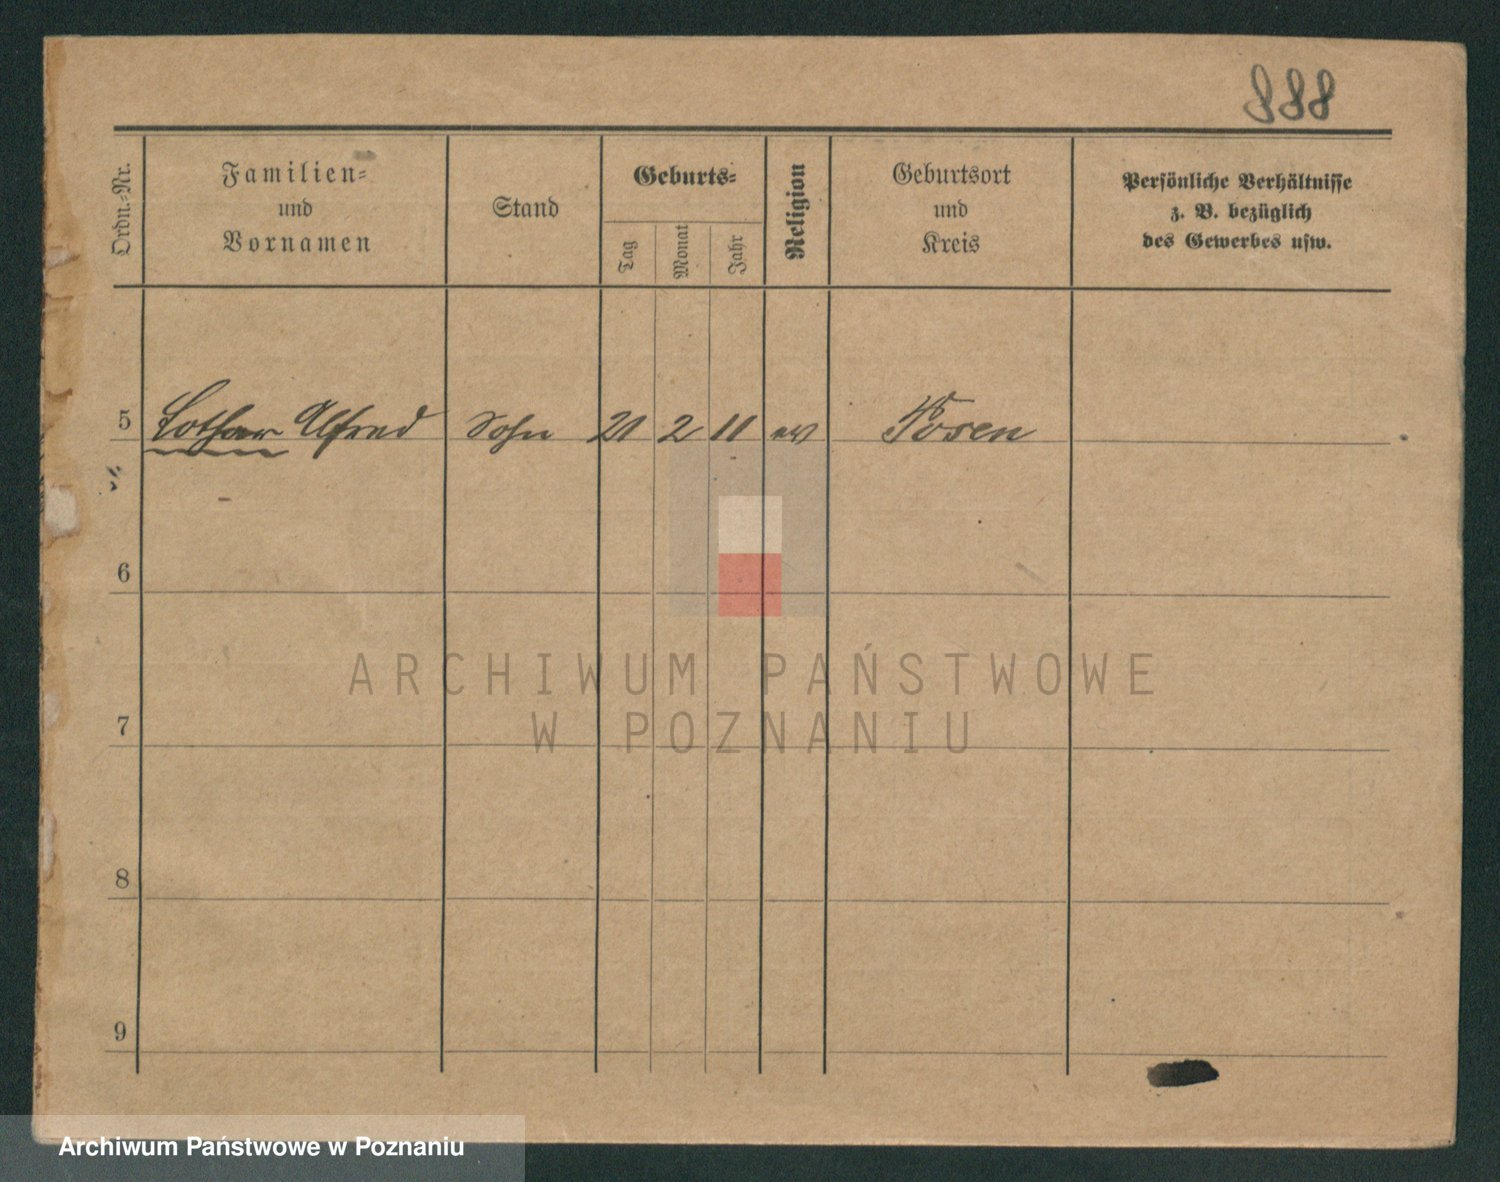 888
Ordn.-Nr.
Familien-
und
Vornamen
Stand
Geburts-
Tag
Monat
Jahr
Religion
Geburtsort
und
Kreis
Persönliche Verhältnisse
z. B. bezüglich
des Gewerbes usw.
5 Lothar Alfred Sohn 21 2 11 ev Posen
6
7
8
9
ARCHIWUM PAŃSTWOWE
W POZNANIU
Archiwum Państwowe w Poznaniu